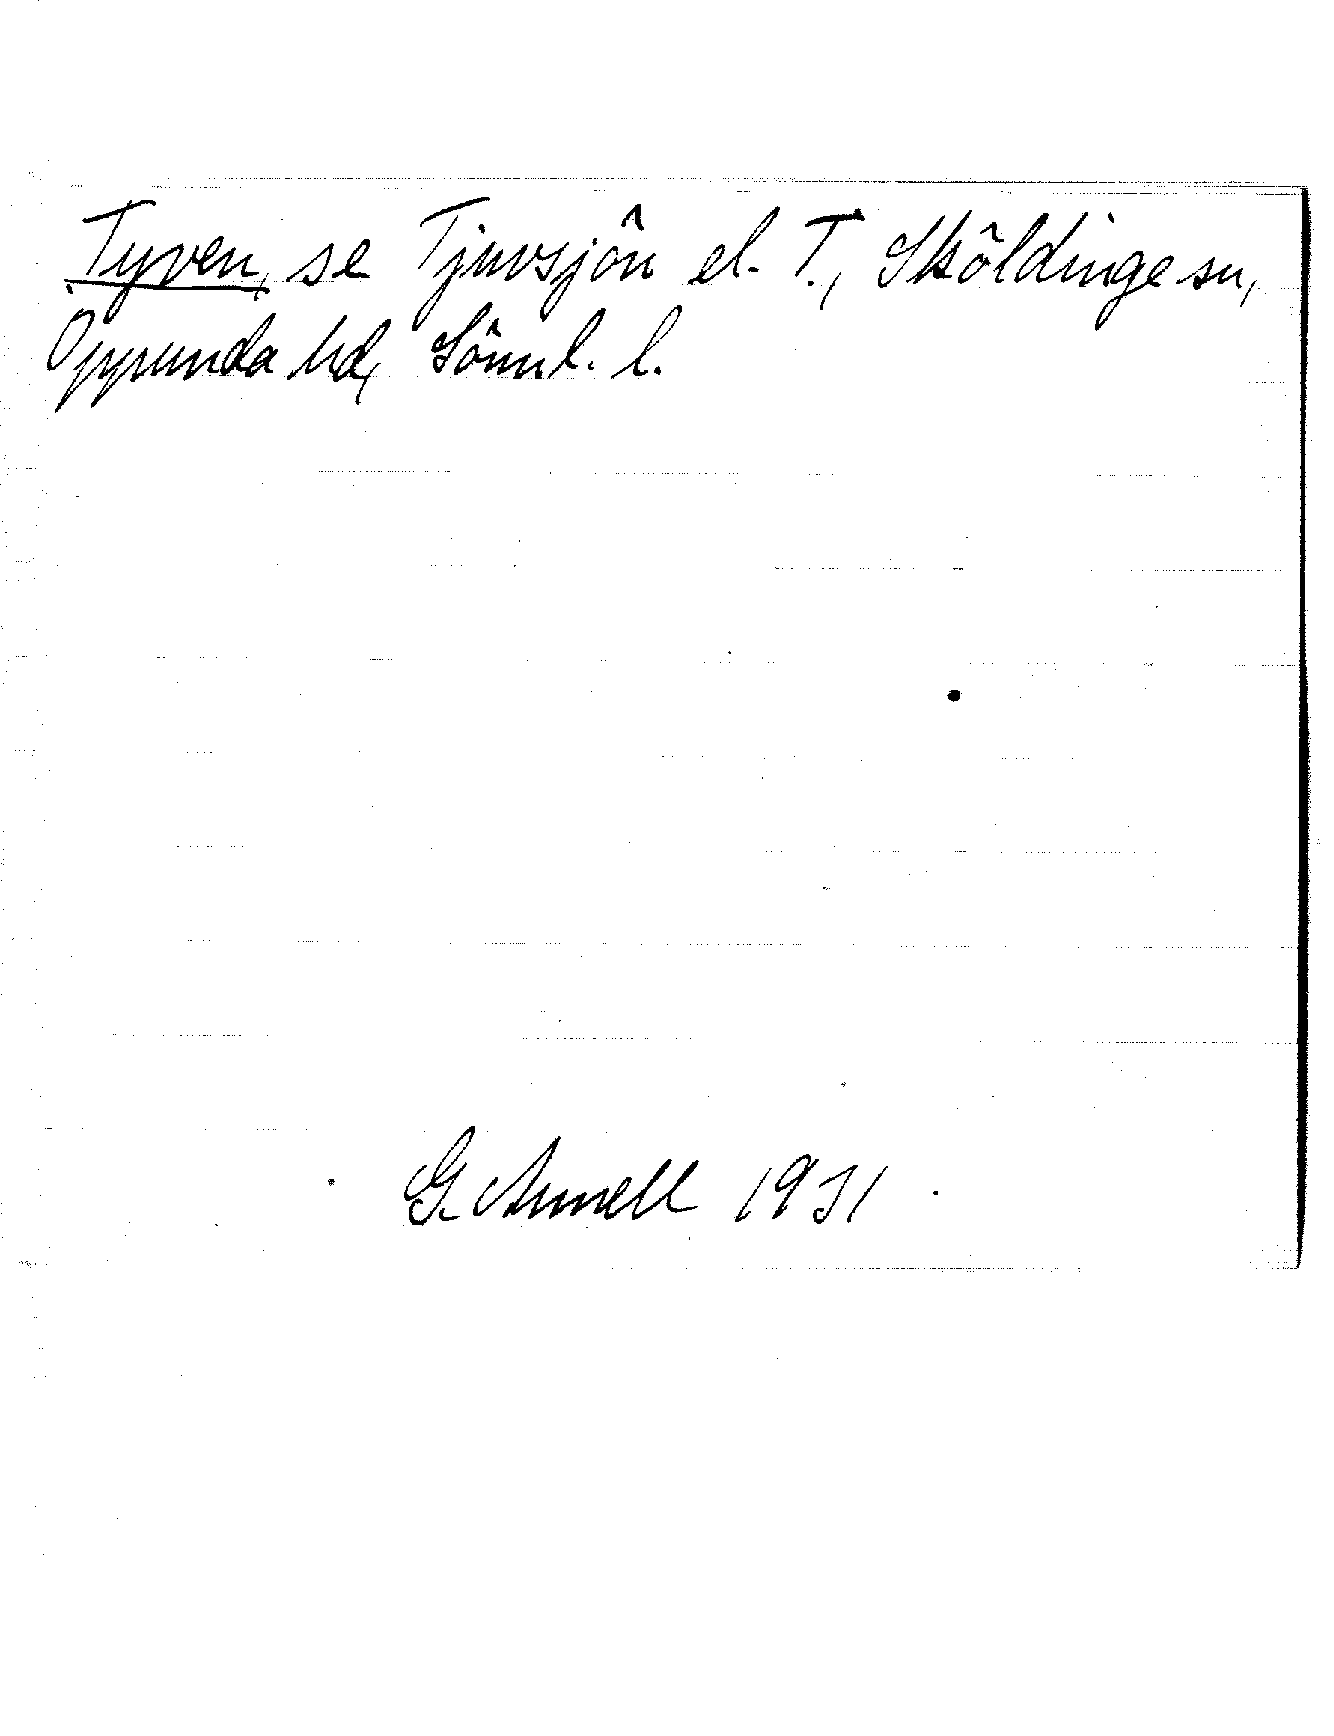 Tyven, se Tjuvsjön el. T., Sköldinge sn,
Oppunda hd, Söml. l.
G. Annell 1931